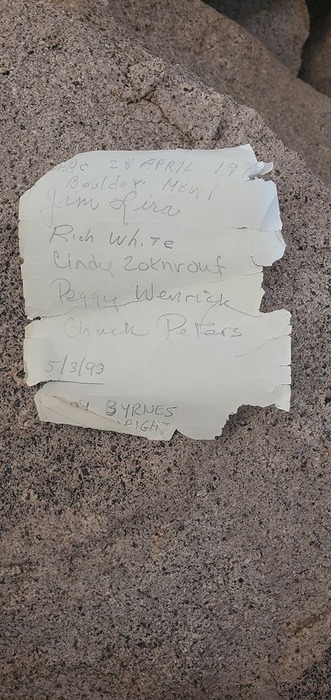 28 APRIL 199
Boulder
Jim Lira
Rich White
Cindy Zoknrouf
Peggy Wenrick
Chuck Peters
5/3/93
BYRNES